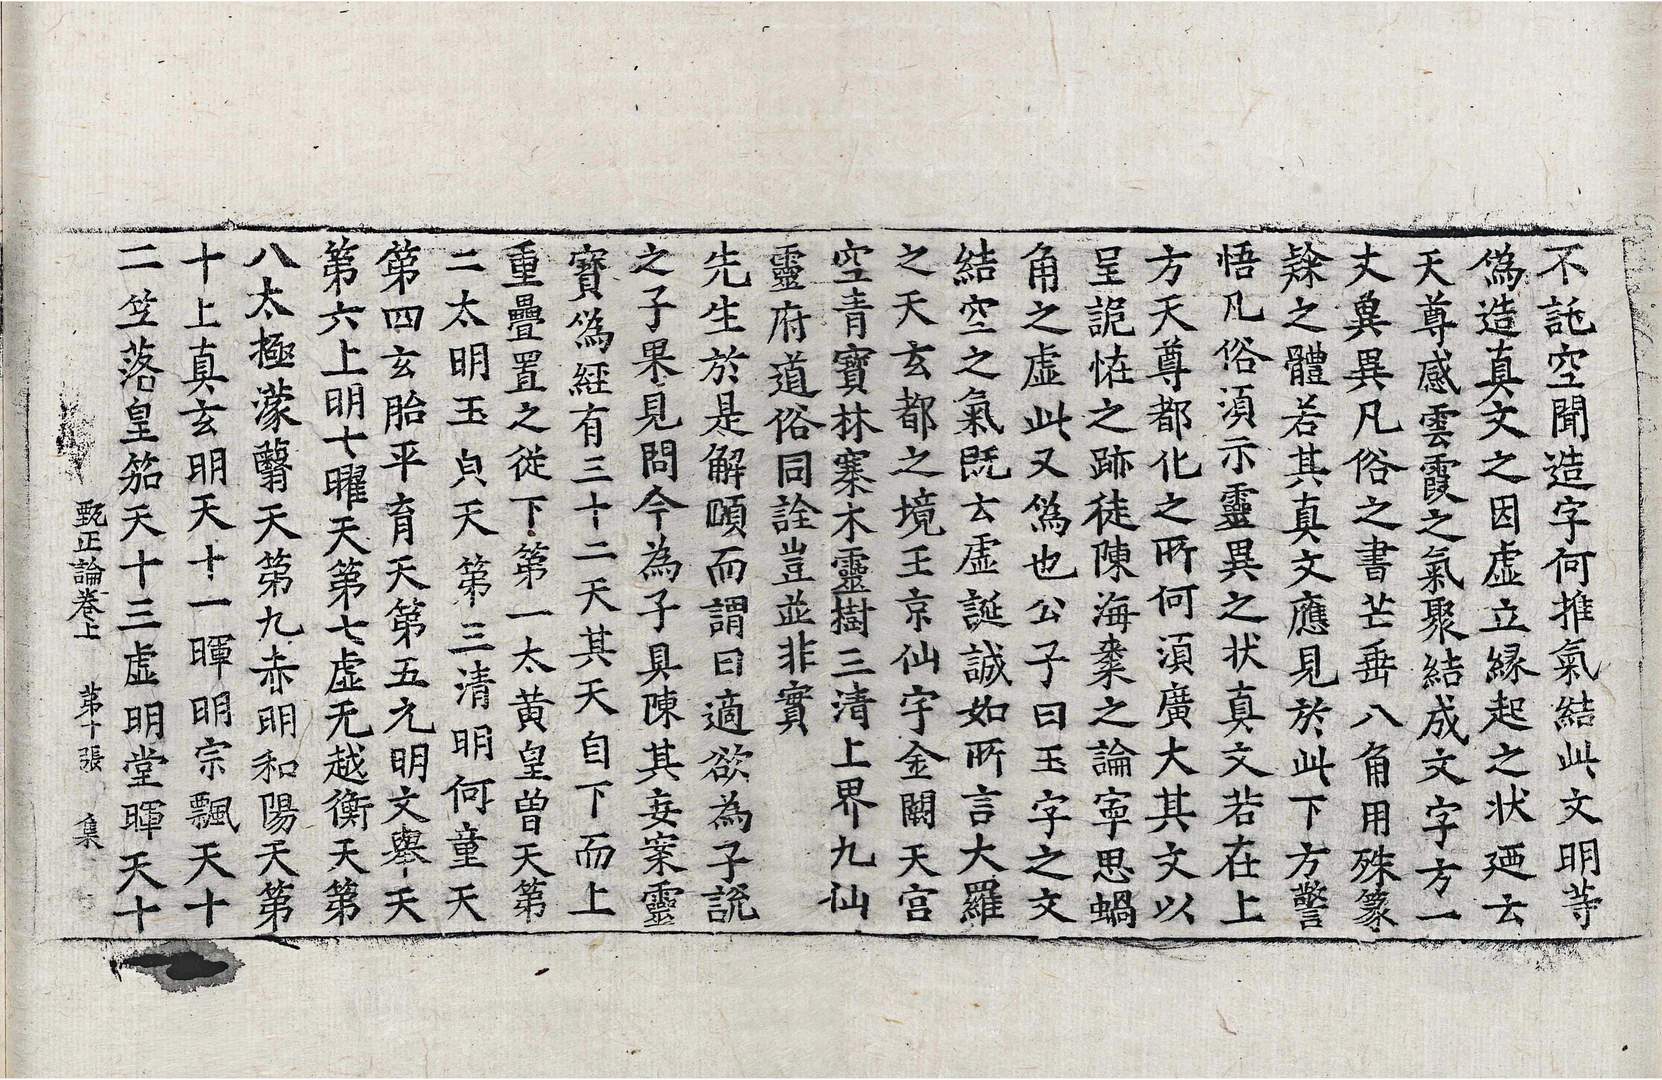 不託空聞造字何推氣結此文明等
偽造真文之因虛立緣起之狀廼云
天尊感雲霞之氣聚結成文字方一
丈奠異凡俗之書芒垂八角用殊篆
隸之體若其真文應見於此下方警
悟凡俗須示靈異之狀真文若在上
方天尊都化之所何須廣大其文以
呈詭恠之跡徒陳海棗之論寧思蝸
角之虛此又偽也公子曰玉字之文
結空之氣旣云虛誕誠如所言大羅
之天玄都之境玉京仙宇金闕天宮
空青寶林寨木靈樹三清上界九仙
靈府道俗同詮豈並非實
先生於是解頤而謂曰適欲為子說
之子果見問今為子具陳其妄案靈
寶偽經有三十二天其天自下而上
重疊置之從下第一太黃皇曾天第
二太明玉貞天第三清明何童天
第四玄胎平育天第五元明文舉天
第六上明七曜天第七虛无越衡天第
八太極濛翳天第九赤明和陽天第
十上真玄明天十一暉明宗飄天十
二笠落皇笳天十三虛明堂暉天十
甄正論卷上 第十張 集